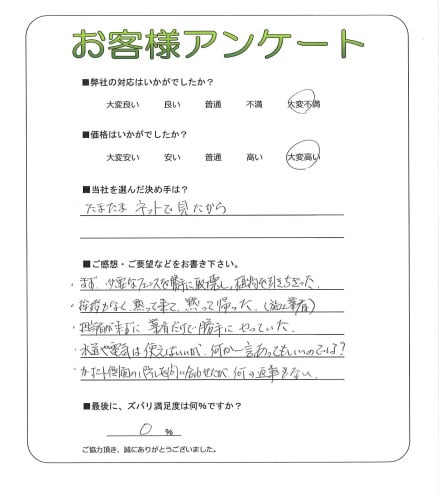 お客様アンケート
■弊社の対応はいかがでしたか？
大変良い 良い 普通 不満 大変不満
■価格はいかがでしたか？
大変安い 安い 普通 高い 大変高い
■当社を選んだ決め手は？
たまたま ネットで見たから
■ご感想・ご要望などをお書き下さい。
・まず、必要なフェンスを勝手に破壊し、植物を引きちぎった。
・挨拶がなく、黙って来て、黙って帰った。(施工業者)
・担当者が来ずに 業者だけで勝手に やっていた。
・水道や電気は 使えばいいが、何か一言あってもいいのでは?
・カーポート側面のパネルを問い合わせたが 何の返事もない。
■最後に、ズバリ満足度は何％ですか？
0 ％
ご協力頂き、誠にありがとうございました。